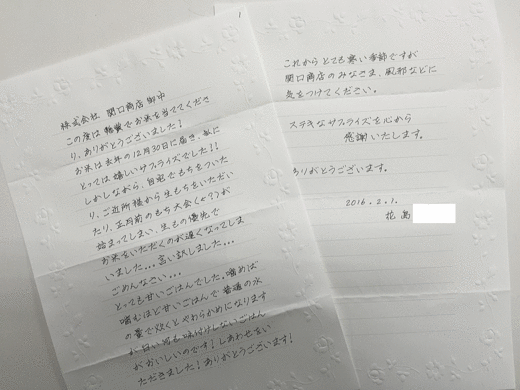 1
株式会社 関口商店 御中
この度は懸賞でお米を当ててくださ
り、ありがとうございました!
お米は去年の12月30日に届き、私に
とっては嬉しいサプライズでした!!
しかしながら、自宅でもちをついた
り、ご近所様から生もちをいただい
たり、正月前のもち大会(や?)が
始まってしまい、生もの優先で
お米をいただくのが遅くなってしま
いました...言い訳しました...
ごめんなさい...
とっても甘いごはんでした。噛めば
噛むほど甘いごはんで普通の水
の量で炊くとやわらかめになります
が、白い何も味付けしないごはん
がおいしいのです!しあわせをい
ただきました!ありがとうございます!
これからとても寒い季節ですが
関口商店のみなさま、風邪などに
気をつけてください。
ステキなサプライズを心から
感謝いたします。
ありがとうございます。
2016.2.1.
花高